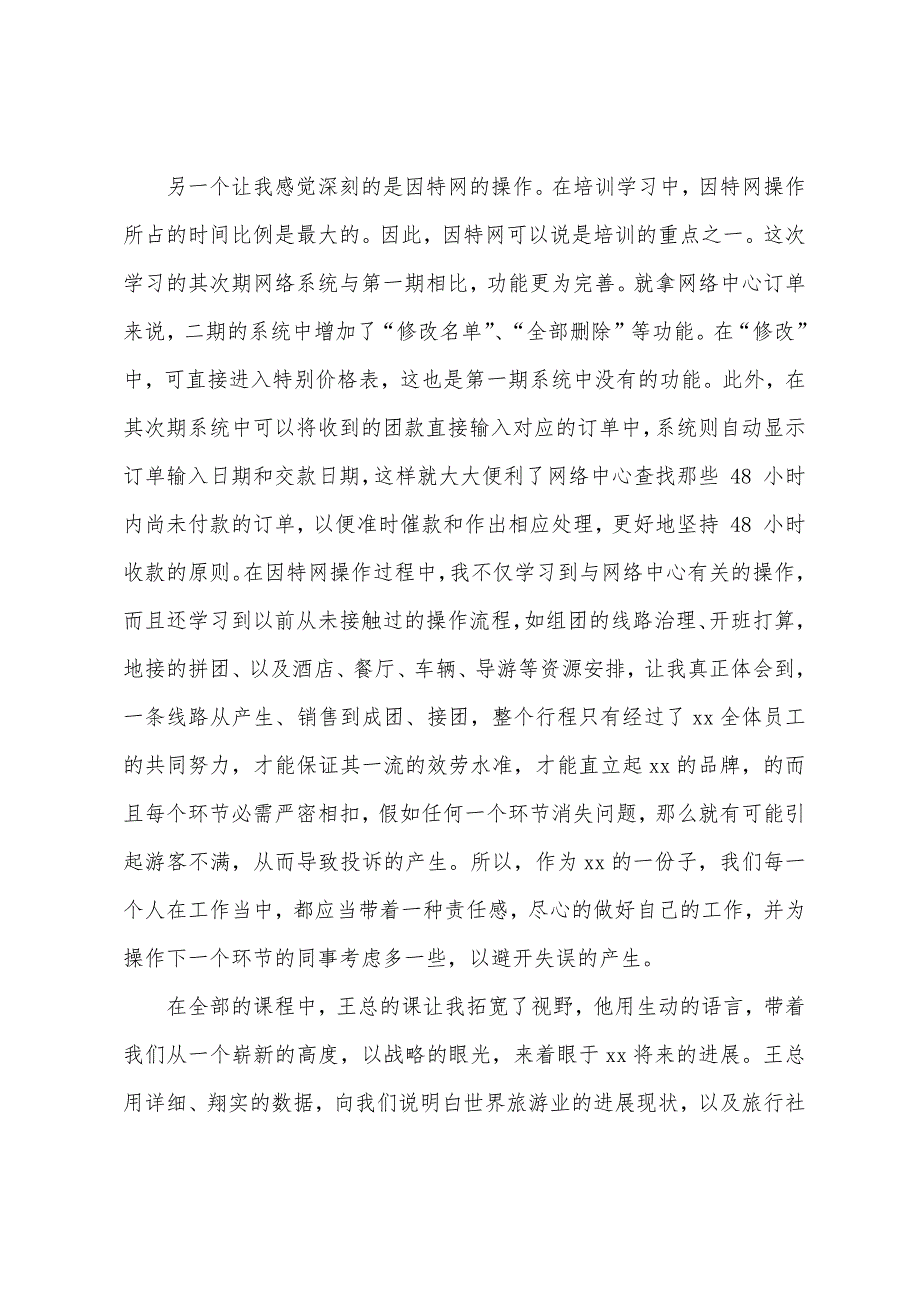 另一个让我感觉深刻的是因特网的操作。在培训学习中，因特网操作
所占的时间比例是最大的。因此，因特网可以说是培训的重点之一。这次
学习的其次期网络系统与第一期相比，功能更为完善。就拿网络中心订单
来说，二期的系统中增加了“修改名单”、“全部删除”等功能。在“修改”
中，可直接进入特别价格表，这也是第一期系统中没有的功能。此外，在
其次期系统中可以将收到的团款直接输入对应的订单中，系统则自动显示
订单输入日期和交款日期，这样就大大便利了网络中心查找那些 48 小时
内尚未付款的订单，以便准时催款和作出相应处理，更好地坚持 48 小时
收款的原则。在因特网操作过程中，我不仅学习到与网络中心有关的操作，
而且还学习到以前从未接触过的操作流程，如组团的线路治理、开班打算，
地接的拼团、以及酒店、餐厅、车辆、导游等资源安排，让我真正体会到，
一条线路从产生、销售到成团、接团，整个行程只有经过了 xx 全体员工
的共同努力，才能保证其一流的效劳水准，才能直立起 xx 的品牌，的而
且每个环节必需严密相扣，假如任何一个环节消失问题，那么就有可能引
起游客不满，从而导致投诉的产生。所以，作为 xx 的一份子，我们每一
个人在工作当中，都应当带着一种责任感，尽心的做好自己的工作，并为
操作下一个环节的同事考虑多一些，以避开失误的产生。
在全部的课程中，王总的课让我拓宽了视野，他用生动的语言，带着
我们从一个崭新的高度，以战略的眼光，来着眼于 xx 将来的进展。王总
用详细、翔实的数据，向我们说明白世界旅游业的进展现状，以及旅行社